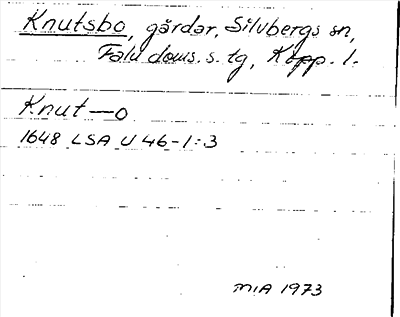 Knutsbo, gårdar, Silvbergs sn,
Falu doms. s. tg, Kopp. l.
Knut—o
1648 LSA U 46-1:3
MIA 1973